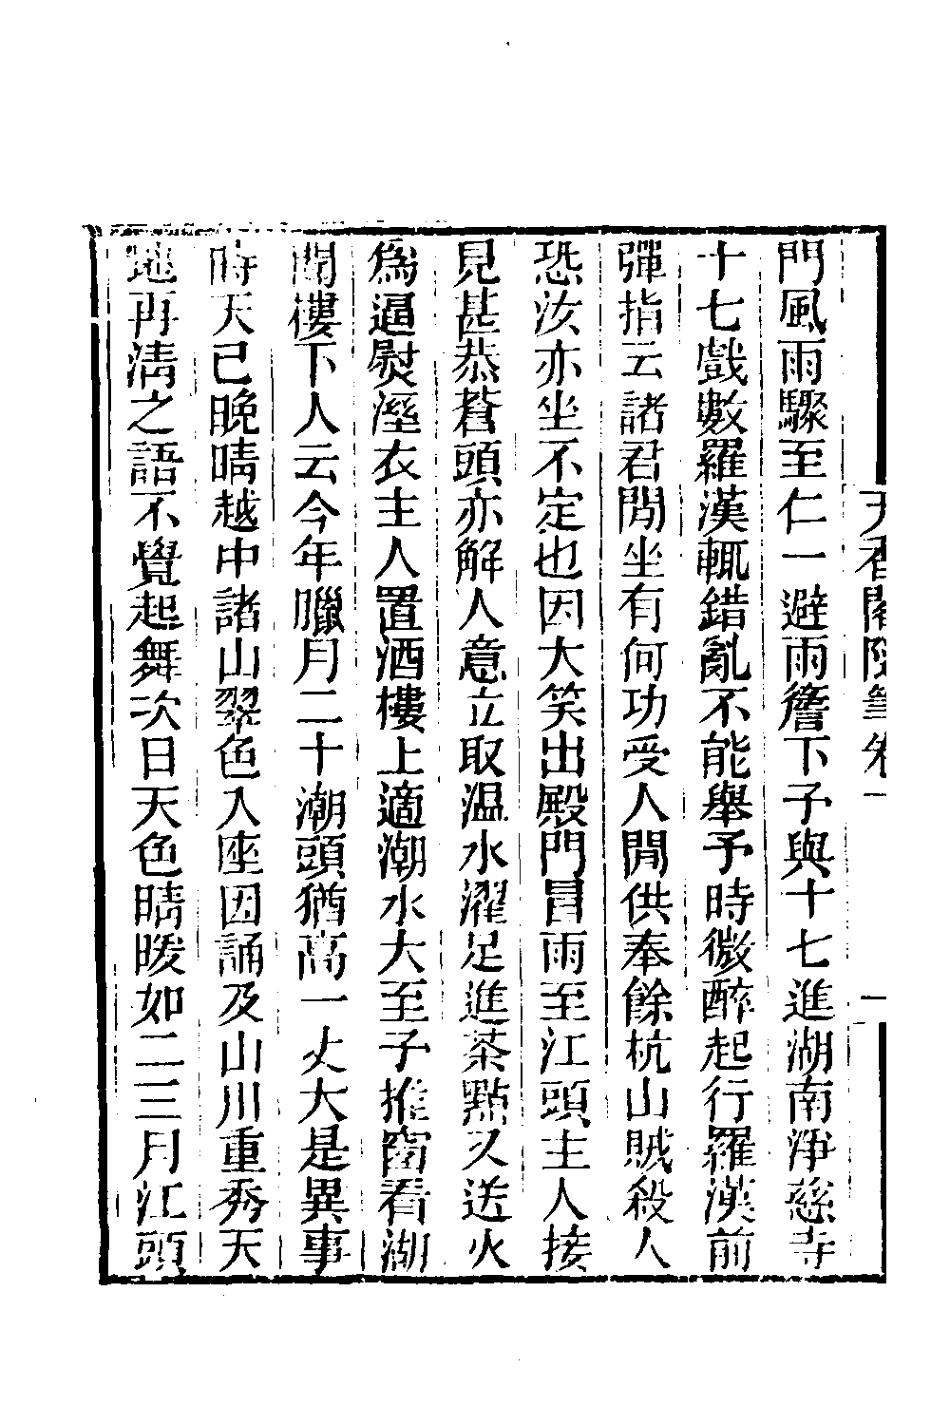 天香閣隨筆卷一 一
門風雨驟至仁一避雨簷下子與十七進湖南淨慈寺
十七戲數羅漢輒錯亂不能舉予時微醉起行羅漢前
彈指云諸君閒坐有何功受人閒供奉餘杭山賊殺人
恐汝亦坐不定也因大笑出殿門冒雨至江頭主人接
見甚恭蒼頭亦解人意立取温水濯足進茶點又送火
爲逼熨溼衣主人置酒樓上適潮水大至子推窗看湖
聞樓下人云今年臘月二十潮頭猶高一丈大是異事
時天已晚晴越中諸山翠色入座因誦及山川重秀天
地再淸之語不覺起舞次日天色晴暖如二三月江頭